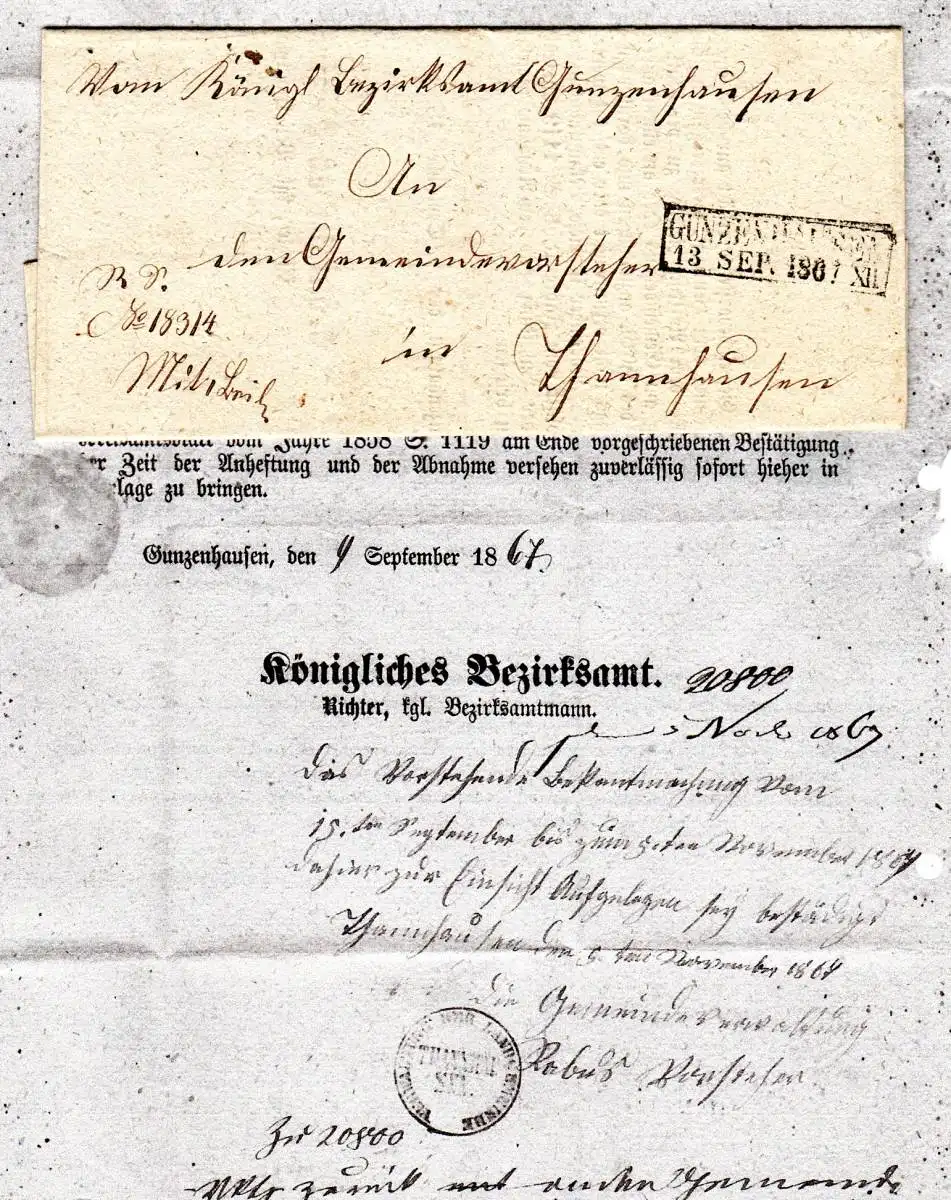 Vom Königl Bezirksamt Gunzenhausen
An
den Gemeindevorsteher
GUNZENHAUSEN
13 SEP. 1867 XII
R. S.
No 18314
Mit 1 Beil
in Thannhausen
Kreisamtsblatt vom Jahre 1858 S. 1119 am Ende vorgeschriebenen Bestätigung
der Zeit der Anheftung und der Abnahme versehen zuverlässig sofort hieher in
lage zu bringen.
Gunzenhausen, den 9 September 1867
Königliches Bezirksamt.
20800
Richter, kgl. Bezirksamtmann.
5 Nov 1867
Das Vorstehende Bekantmachung vom
15.ten September bis zum 5ten November 1867
dahier zur Einsicht Aufgelegen sey bestädigt
Thannhausen den 5.ten November 1867
Die Gemeindeverwaltung
Robus Vorsteher
VERWALTUNG DER LANDGEMEINDE
THANNHAUSEN
Zu 20800
zurück an die Gemeinde